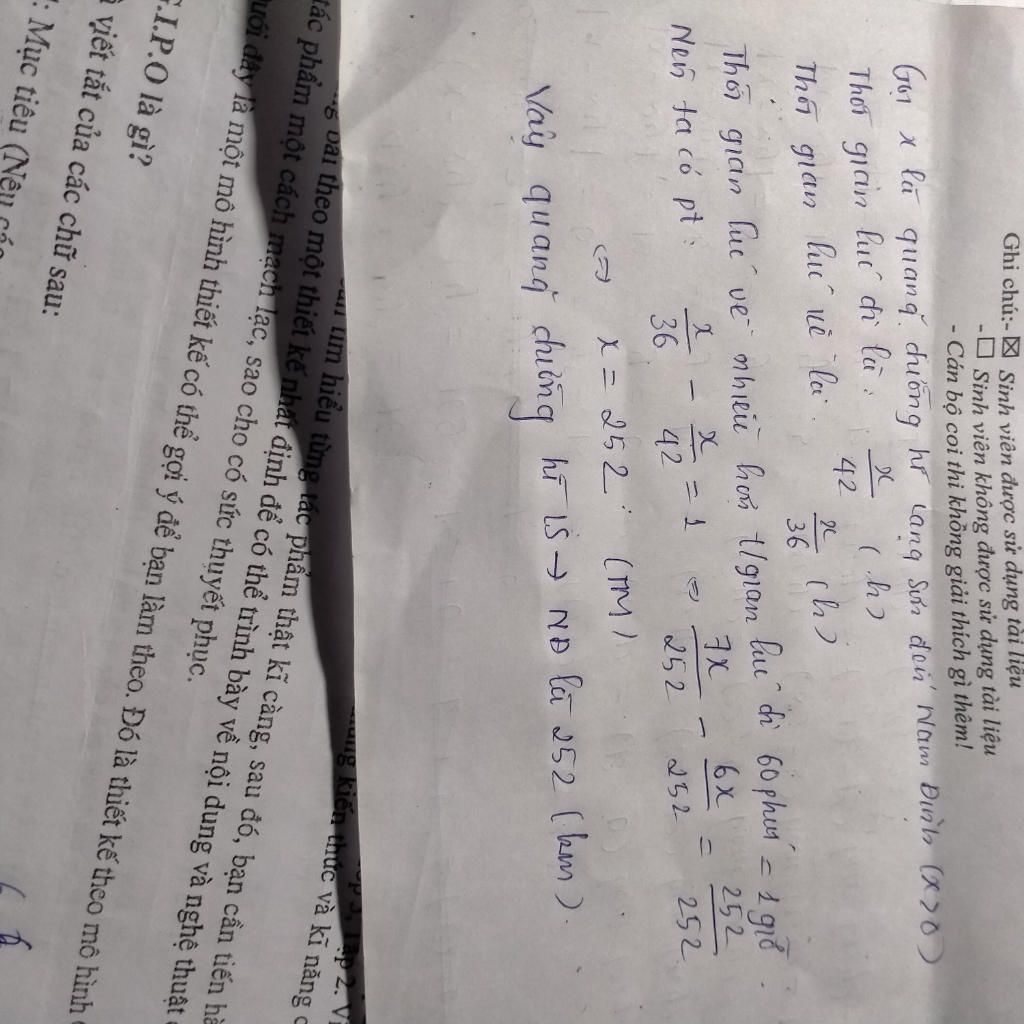 Ghi chú:- ☒ Sinh viên được sử dụng tài liệu
- ☐ Sinh viên không được sử dụng tài liệu
- Cán bộ coi thi không giải thích gì thêm!
Gọi x là quãng đường từ Lạng Sơn đến Nam Định (x>0)
Thời gian lúc đi là: x/42 (h)
Thời gian lúc về là: x/36 (h)
Thời gian lúc về nhiều hơn t/gian lúc đi 60 phút = 1 giờ.
Nên ta có pt: x/36 - x/42 = 1 ⇔ 7x/252 - 6x/252 = 252/252
⇔ x = 252 (TM)
Vậy quãng đường từ LS → NĐ là 252 (km).
tập 2.
kiến thức và kĩ năng
bài theo một thiết kế nhất định để có thể trình bày về nội dung và nghệ thuật
tìm hiểu từng tác phẩm thật kĩ càng, sau đó, bạn cần tiến
tác phẩm một cách mạch lạc, sao cho có sức thuyết phục.
đây là một mô hình thiết kế có thể gợi ý để bạn làm theo. Đó là thiết kế theo mô hình
.I.P.O là gì?
viết tắt của các chữ sau:
: Mục tiêu (Nêu